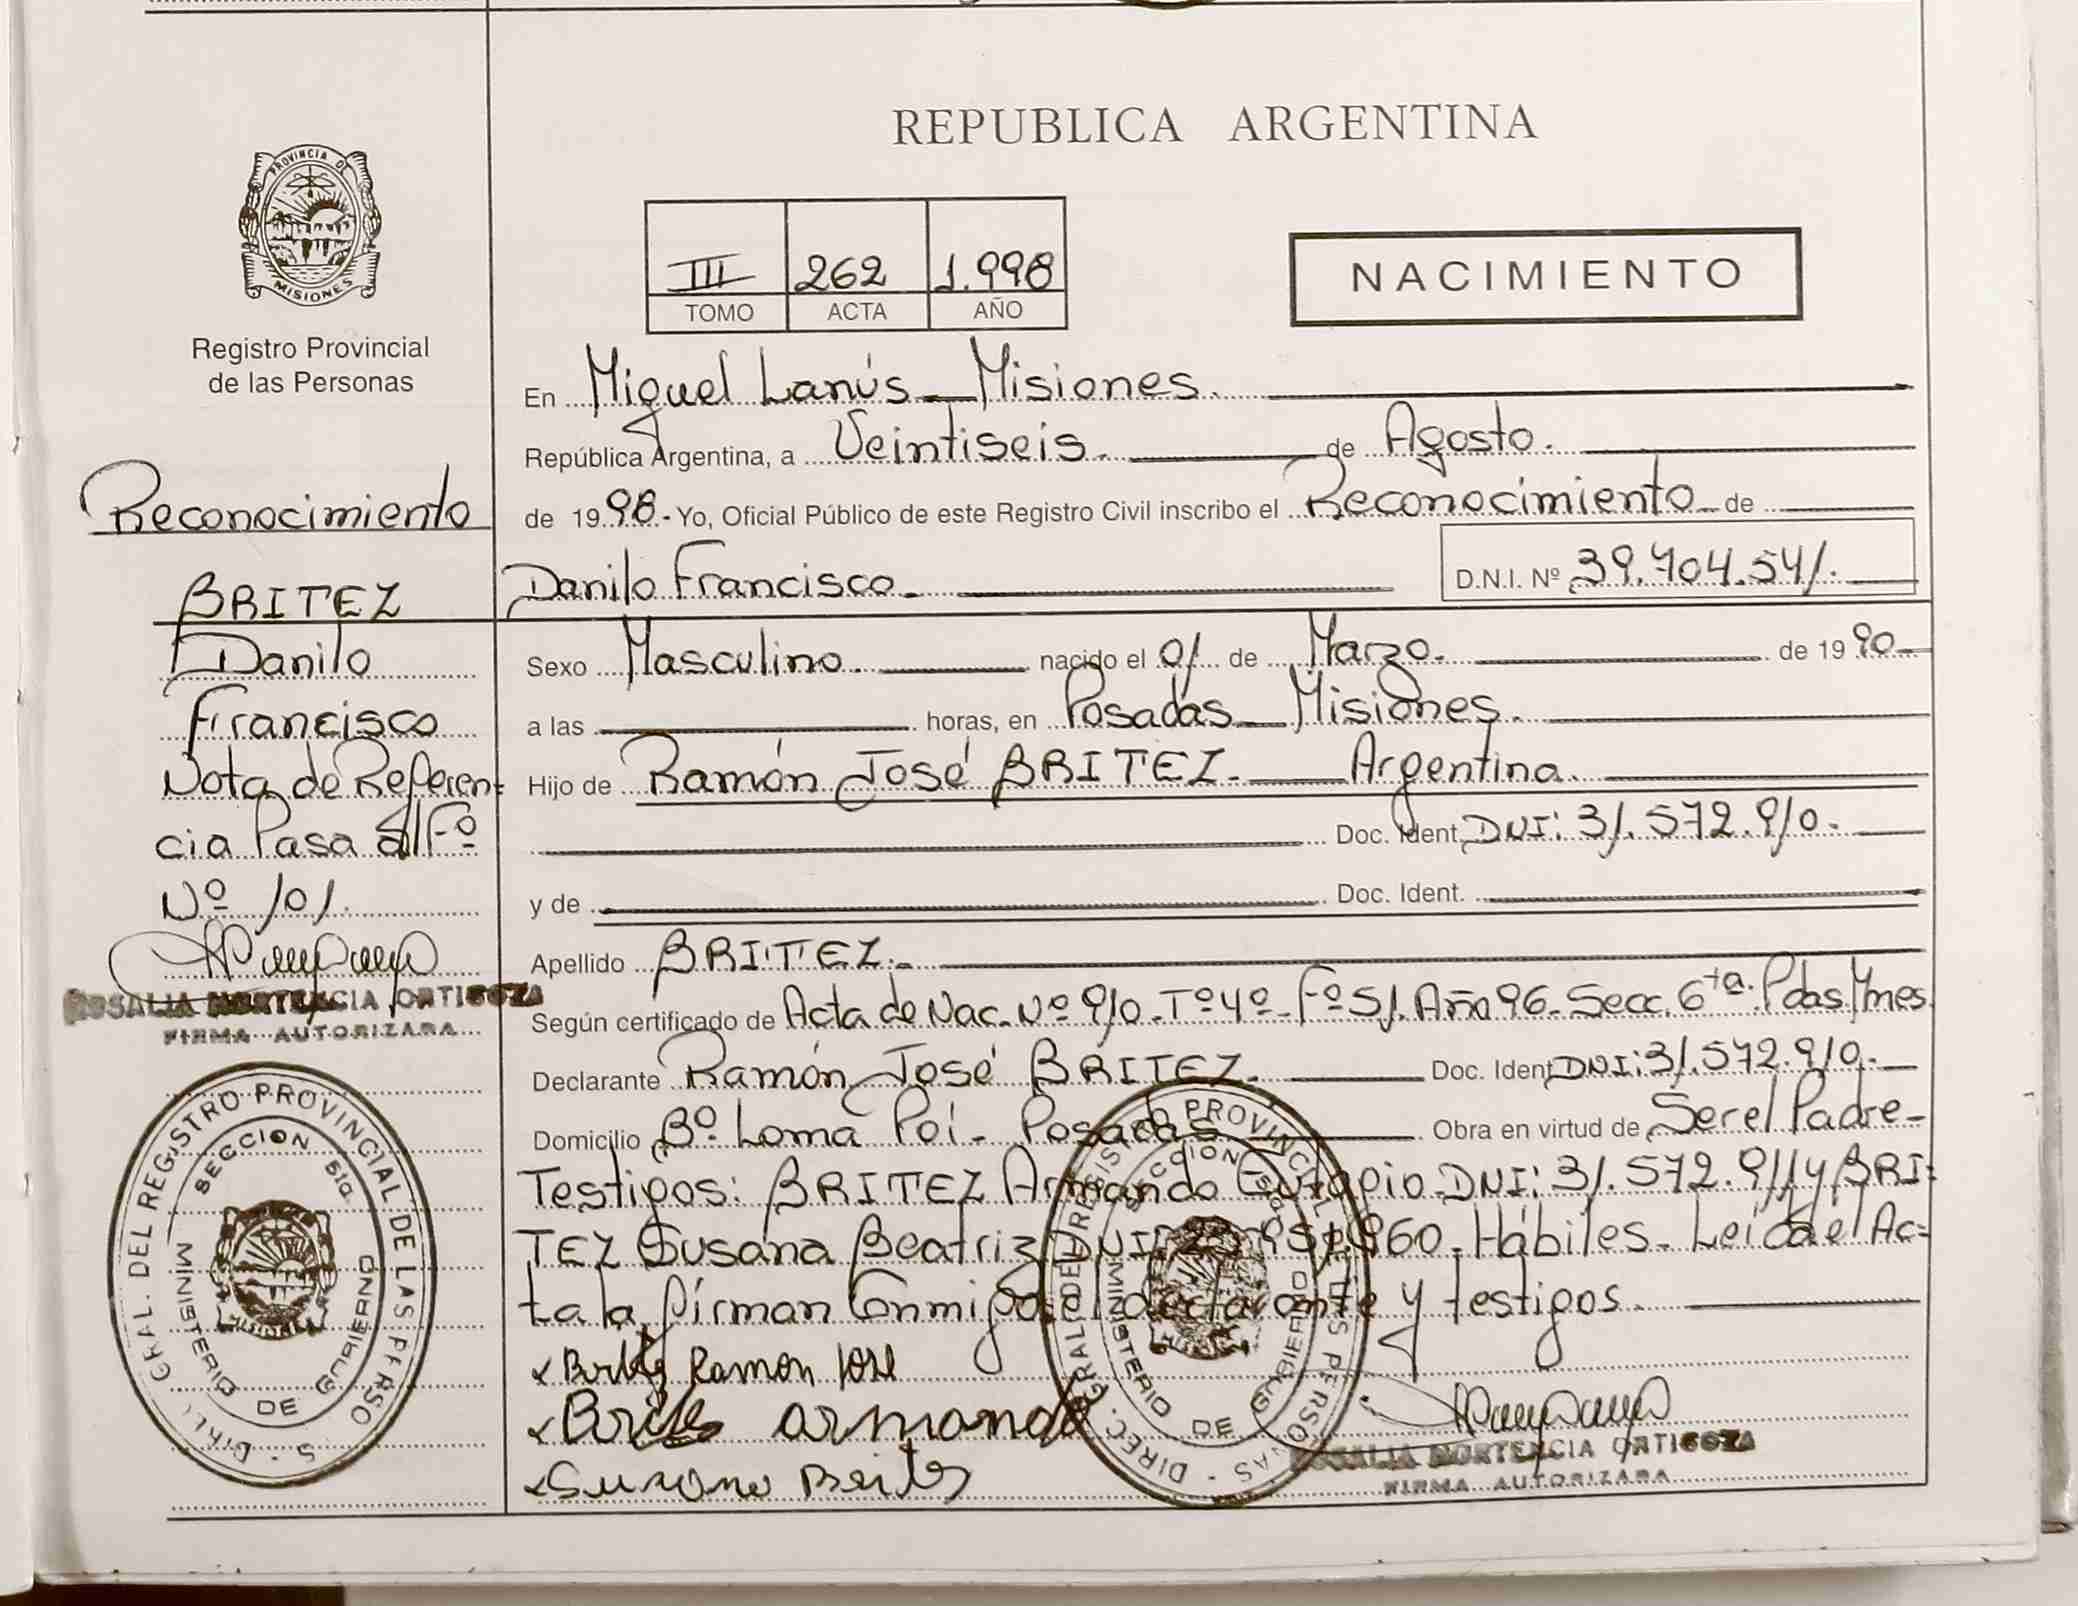 REPUBLICA ARGENTINA
PROVINCIA DE
MISIONES
Registro Provincial
de las Personas
III 262 1.998
TOMO ACTA AÑO
NACIMIENTO
Reconocimiento
BRITEZ
Danilo
Francisco
Nota de Referen
cia Pasa al Fº
Nº 101.
ROSALIA HORTENCIA ORTIGOZA
FIRMA AUTORIZADA
DIREC. GRAL. DEL REGISTRO PROVINCIAL DE LAS PERSONAS
SECCION 5ta.
MINISTERIO DE GOBIERNO
En Miguel Lanús - Misiones.
República Argentina, a Veintiseis. de Agosto.
de 1998.- Yo, Oficial Público de este Registro Civil inscribo el Reconocimiento de
Danilo Francisco. D.N.I. Nº 39.704.541.
Sexo Masculino. nacido el 01 de Marzo. de 1990
a las horas, en Posadas - Misiones.
Hijo de Ramón José BRITEZ. Argentina.
Doc. Ident. DNI: 31.572.910.
y de Doc. Ident.
Apellido BRITEZ.
Según certificado de Acta de Nac. Nº 910. Tº 4º. Fº 51. Año 96. Secc. 6ta. Pdas. Mnes.
Declarante Ramón José BRITEZ. Doc. Ident. DNI: 31.572.910.
Domicilio Bº Loma Poi - Posadas. Obra en virtud de Ser el Padre-
Testigos: BRITEZ Armando DNI: 31.572.911 y BRI=
TEZ Susana Beatriz DNI: 960. Hábiles. Leída el Ac=
ta la firman Conmigo el declarante y testigos.
x Britez Ramon Jose
x Brites armando
x Susana Beites
DIREC. GRAL. DEL REGISTRO PROVINCIAL DE LAS PERSONAS
SECCION 5ta.
MINISTERIO DE GOBIERNO
ROSALIA HORTENCIA ORTIGOZA
FIRMA AUTORIZADA